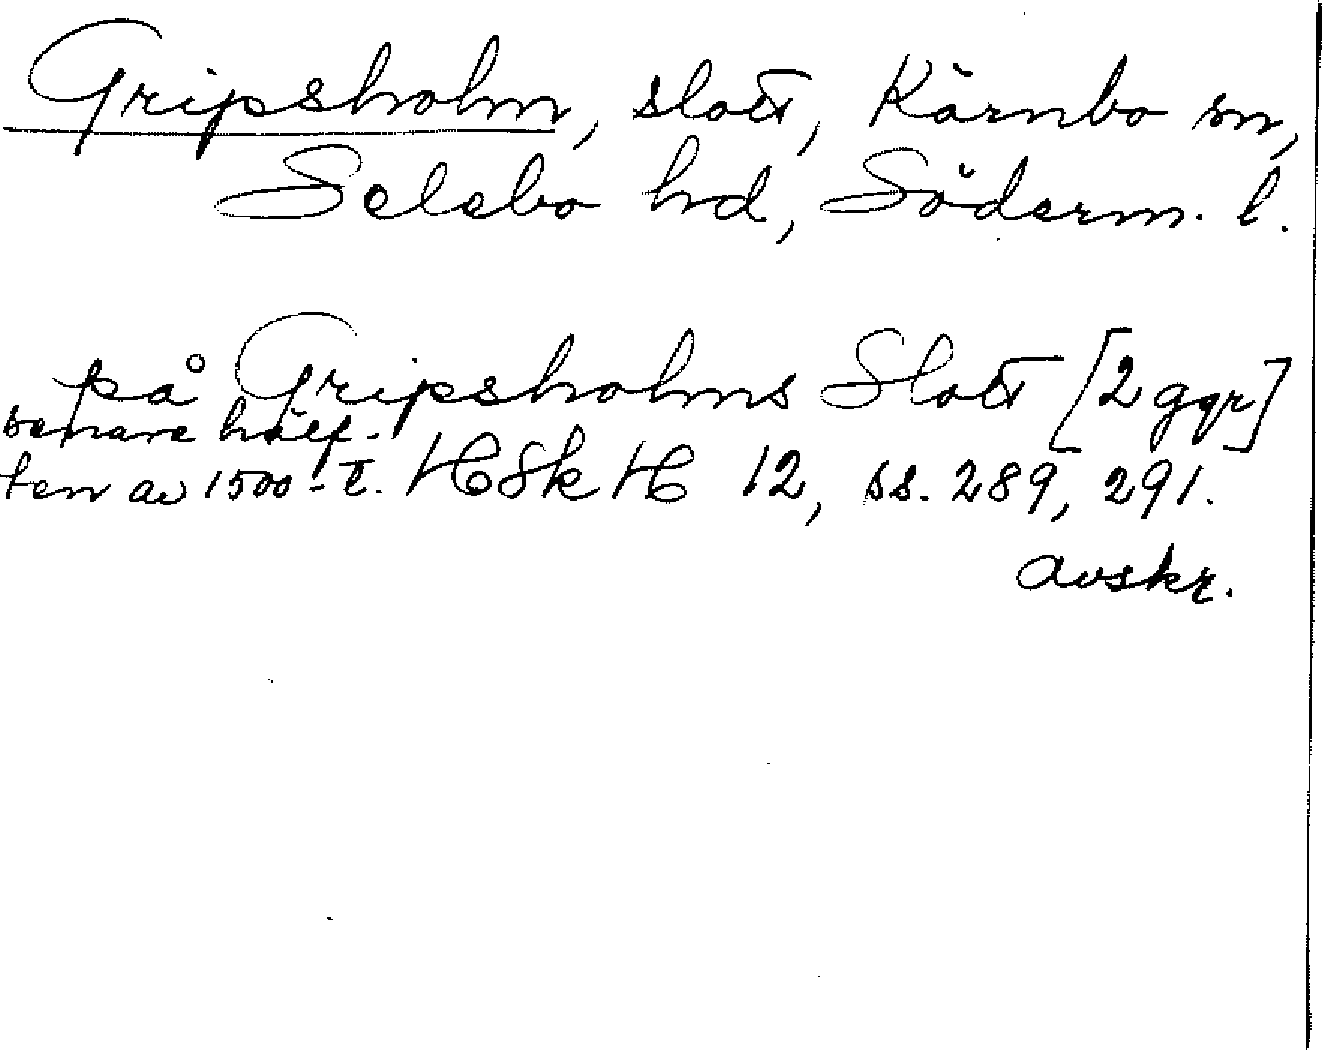 Gripsholm, slott, Kärnbo sn,
Selebo hd, Söderm. l.
på Gripsholms Slott [2 ggr]
senare hälf-
ten av 1500-t. HSkH 12, ss. 289, 291.
avskr.